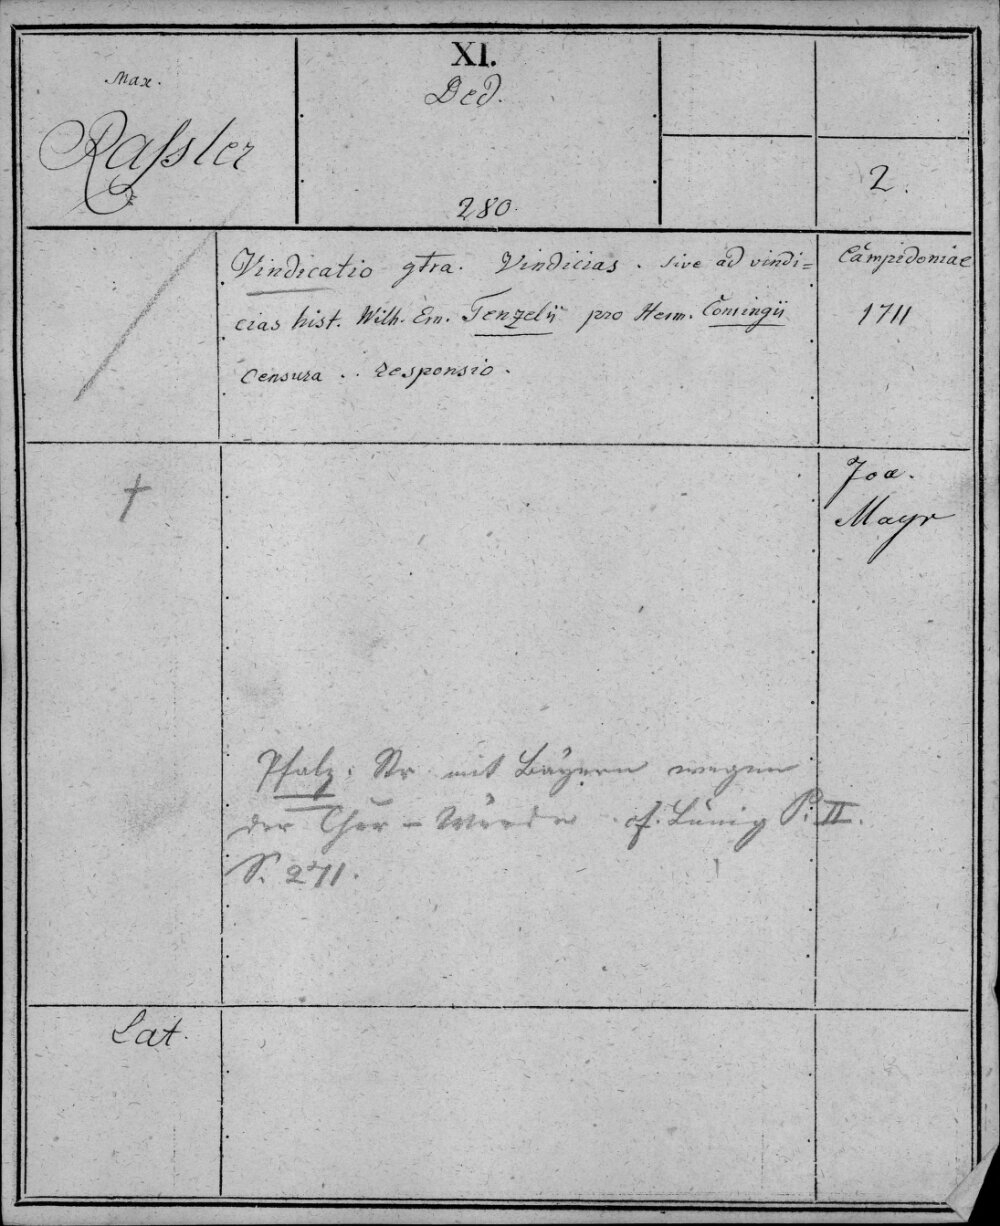 Max.
Rassler
XI.
Ded.
280.
2.
Vindicatio gtra. Vindicias. sive ad vindi=
cias hist. Wilh. Ern. Tenzelii pro Herm. Conringii
Censura .. responsio.
Campidoniae
1711
†
Joa.
Mayr
Pfalz. Str mit Bayern wegen
der Chur-Würde cf. Lünig P. II.
S. 271.
Lat.